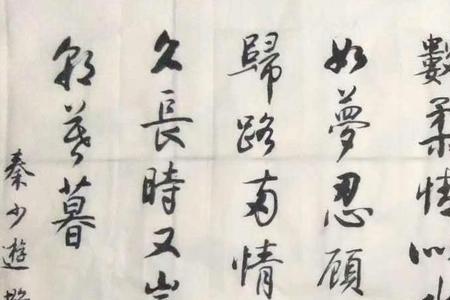 數柔情似水
如夢忍顧
歸路兩情
久長時又豈
朝暮暮
秦少遊鵲